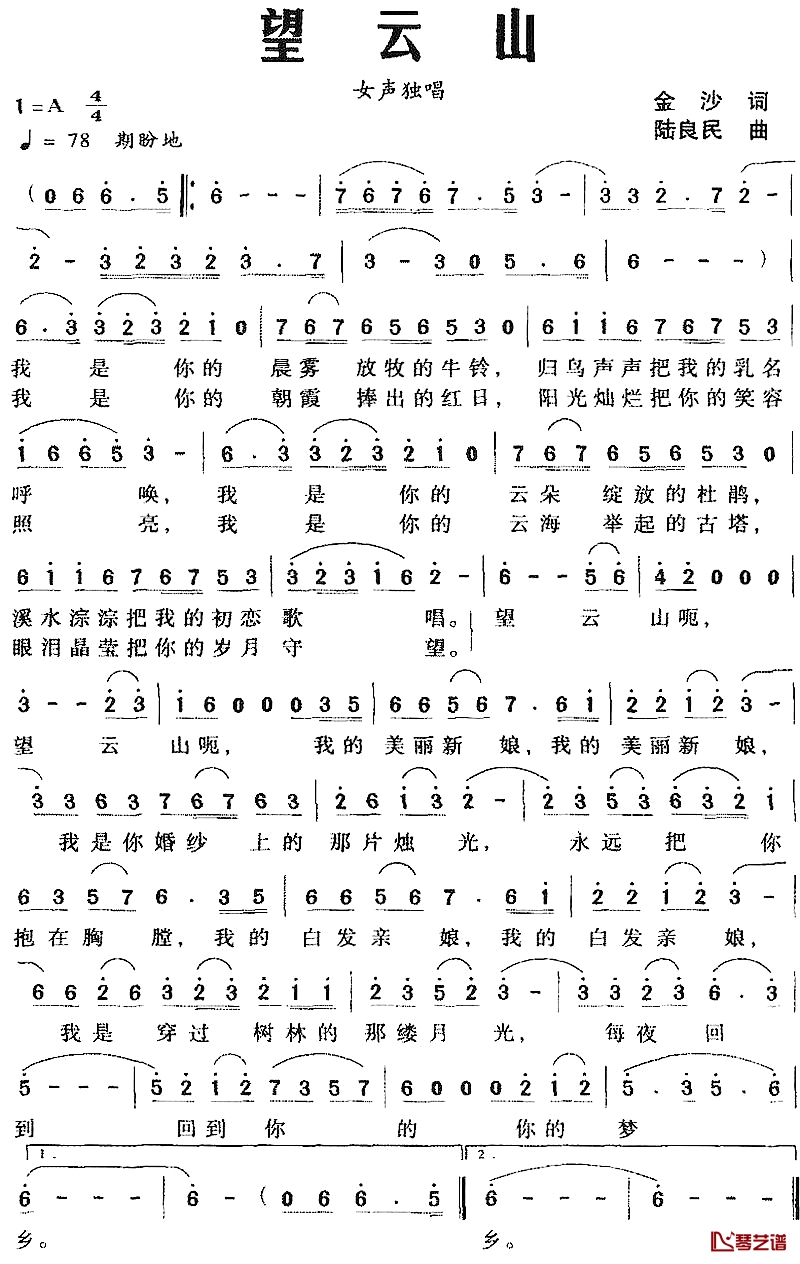 望云山
女声独唱
1=A 4/4
金沙 词
♩= 78 期盼地
陆良民 曲
(0 6 6 . 5 ‖: 6 - - - | 7 6 7 6 7 . 5 3 - | 3 3 2 . 7 2 -
2 - 3 2 3 2 3 . 7 | 3 - 3 0 5 . 6 | 6 - - - )
6 . 3 3 2 3 2 1 0 | 7 6 7 6 5 6 5 3 0 | 6 1 1 6 7 6 7 5 3
我是你的晨雾放牧的牛铃，归鸟声声把我的乳名
我是你的朝霞捧出的红日，阳光灿烂把你的笑容
1 6 6 5 3 - | 6 . 3 3 2 3 2 1 0 | 7 6 7 6 5 6 5 3 0
呼唤，我是你的云朵绽放的杜鹃，
照亮，我是你的云海举起的古塔，
6 1 1 6 7 6 7 5 3 | 3 2 3 1 6 2 - | 6 - - 5 6 | 4 2 0 0 0
溪水淙淙把我的初恋歌唱。望云山呃，
眼泪晶莹把你的岁月守望。
3 - - 2 3 | 1 6 0 0 0 3 5 | 6 6 5 6 7 . 6 1 | 2 2 1 2 3 -
望云山呃，我的美丽新娘，我的美丽新娘，
3 3 6 3 7 6 7 6 3 | 2 6 1 3 2 - | 2 3 5 3 6 3 2 1
我是你婚纱上的那片烛光，永远把你
6 3 5 7 6 . 3 5 | 6 6 5 6 7 . 6 1 | 2 2 1 2 3 -
抱在胸膛，我的白发亲娘，我的白发亲娘，
6 6 2 6 3 2 3 2 1 1 | 2 3 5 2 3 - | 3 3 2 3 6 . 3
我是穿过树林的那缕月光，每夜回
5 - - - | 5 2 1 2 7 3 5 7 | 6 0 0 0 2 1 2 | 5 . 3 5 . 6
到回到你的你的梦
1. 2.
6 - - - | 6 - ( 0 6 6 . 5 :‖ 6 - - - | 6 - - - ‖
乡。乡。
琴艺谱